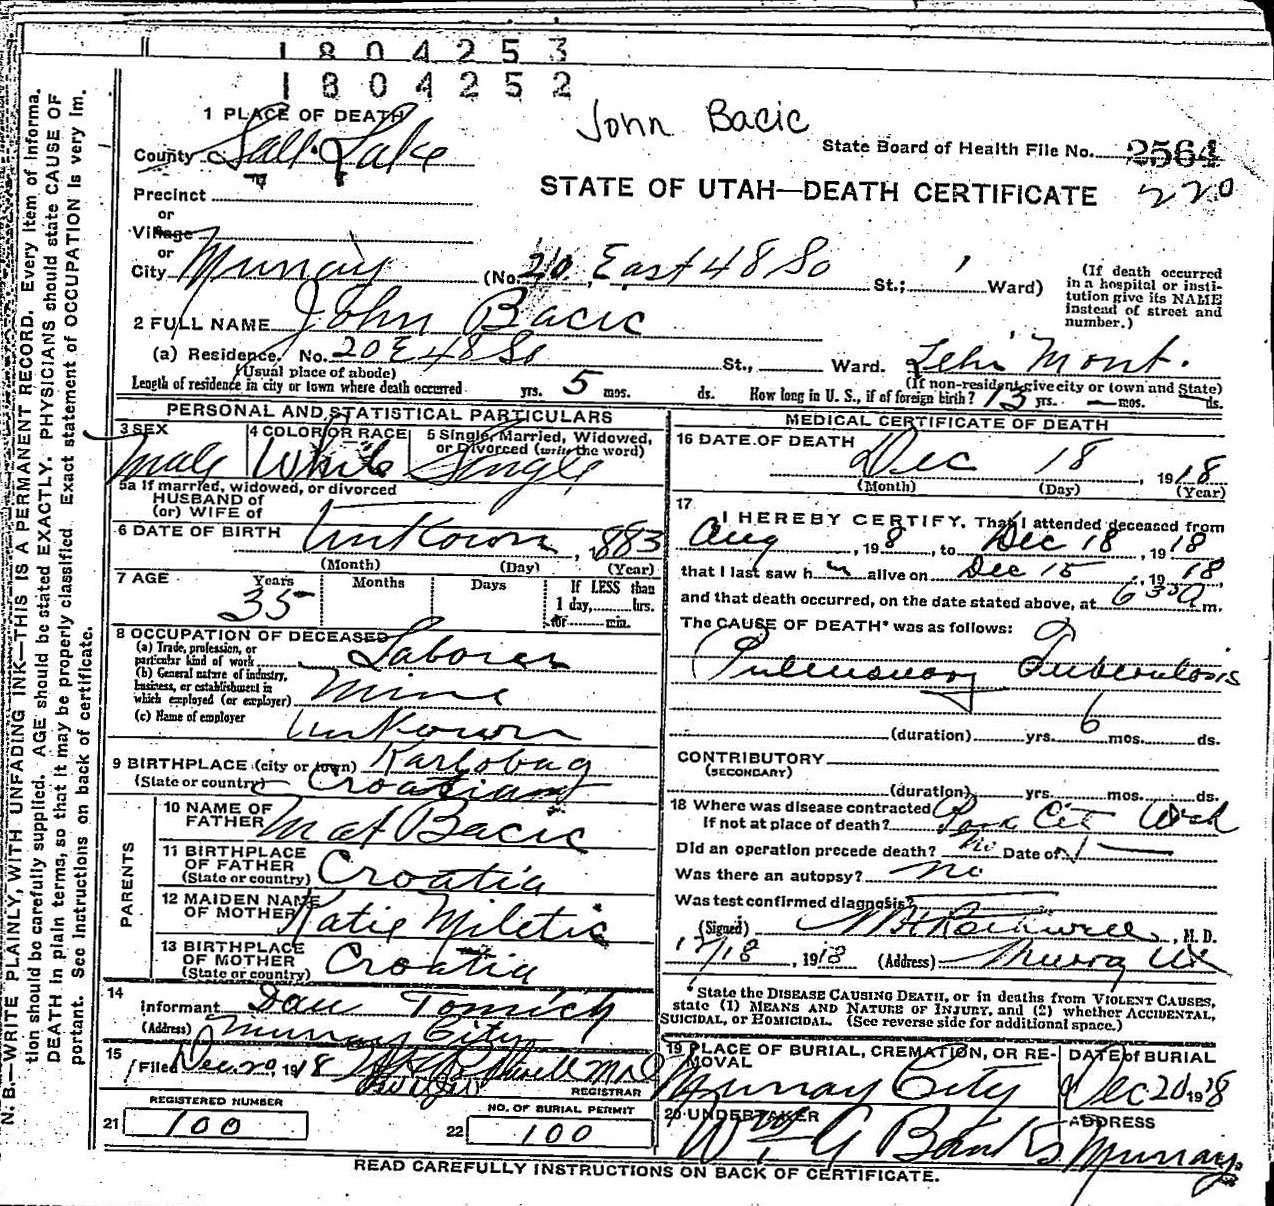 1804253
1804252
John Bacic
1 PLACE OF DEATH
County Salt Lake
State Board of Health File No. 2564
220
STATE OF UTAH—DEATH CERTIFICATE
Precinct
or
Village
or
City Murray (No. 20, East 48 So St.; Ward)
(If death occurred in a hospital or institution give its NAME instead of street and number.)
2 FULL NAME John Bacic
(a) Residence. No. 20 E 48 So St., Ward. Mont.
(Usual place of abode) (If non-resident give city or town and State)
Length of residence in city or town where death occurred yrs. 5 mos. ds. How long in U. S., if of foreign birth? 13 yrs. — mos. — ds.
PERSONAL AND STATISTICAL PARTICULARS
3 SEX Male
4 COLOR OR RACE White
5 Single, Married, Widowed, or Divorced (write the word) Single
5a If married, widowed, or divorced
HUSBAND of
(or) WIFE of
6 DATE OF BIRTH Unkown, 1883
(Month) (Day) (Year)
7 AGE Years 35 Months Days If LESS than 1 day, hrs. or min.
8 OCCUPATION OF DECEASED
(a) Trade, profession, or particular kind of work Laborer
(b) General nature of industry, business, or establishment in which employed (or employer) Mine
(c) Name of employer Unkown
9 BIRTHPLACE (city or town) Karlobag
(State or country) Croatian
PARENTS
10 NAME OF FATHER Mat Bacic
11 BIRTHPLACE OF FATHER (State or country) Croatia
12 MAIDEN NAME OF MOTHER Katie Miletic
13 BIRTHPLACE OF MOTHER (State or country) Croatia
14
Informant Dan Tomich
(Address) Murray City
15
Filed Dec 20, 1918 Rothwell M.D.
REGISTRAR
REGISTERED NUMBER
21 100
NO. OF BURIAL PERMIT
22 100
MEDICAL CERTIFICATE OF DEATH
16 DATE OF DEATH
Dec 18, 1918
(Month) (Day) (Year)
17
I HEREBY CERTIFY, That I attended deceased from
Aug, 19 8, to Dec 18, 1918
that I last saw h alive on Dec 15, 1918,
and that death occurred, on the date stated above, at 6 30 a m.
The CAUSE OF DEATH* was as follows:
Pulmonary Tuberculosis
(duration) yrs. 6 mos. ds.
CONTRIBUTORY
(SECONDARY)
(duration) yrs. mos. ds.
18 Where was disease contracted
If not at place of death? Park City Utah
Did an operation precede death? No Date of —
Was there an autopsy? no
Was test confirmed diagnosis?
(Signed) Rothwell, M. D.
12/18, 1918 (Address) Murray Ut
*State the DISEASE CAUSING DEATH, or in deaths from VIOLENT CAUSES, state (1) MEANS AND NATURE OF INJURY, and (2) whether ACCIDENTAL, SUICIDAL, or HOMICIDAL. (See reverse side for additional space.)
19 PLACE OF BURIAL, CREMATION, OR REMOVAL
Murray City
DATE of BURIAL
Dec 20 1918
20 UNDERTAKER
Wm G Banks
ADDRESS
Murray
READ CAREFULLY INSTRUCTIONS ON BACK OF CERTIFICATE.
N. B.—WRITE PLAINLY, WITH UNFADING INK—THIS IS A PERMANENT RECORD. Every item of information should be carefully supplied. AGE should be stated EXACTLY. PHYSICIANS should state CAUSE OF DEATH in plain terms, so that it may be properly classified. Exact statement of OCCUPATION is very important. See instructions on back of certificate.